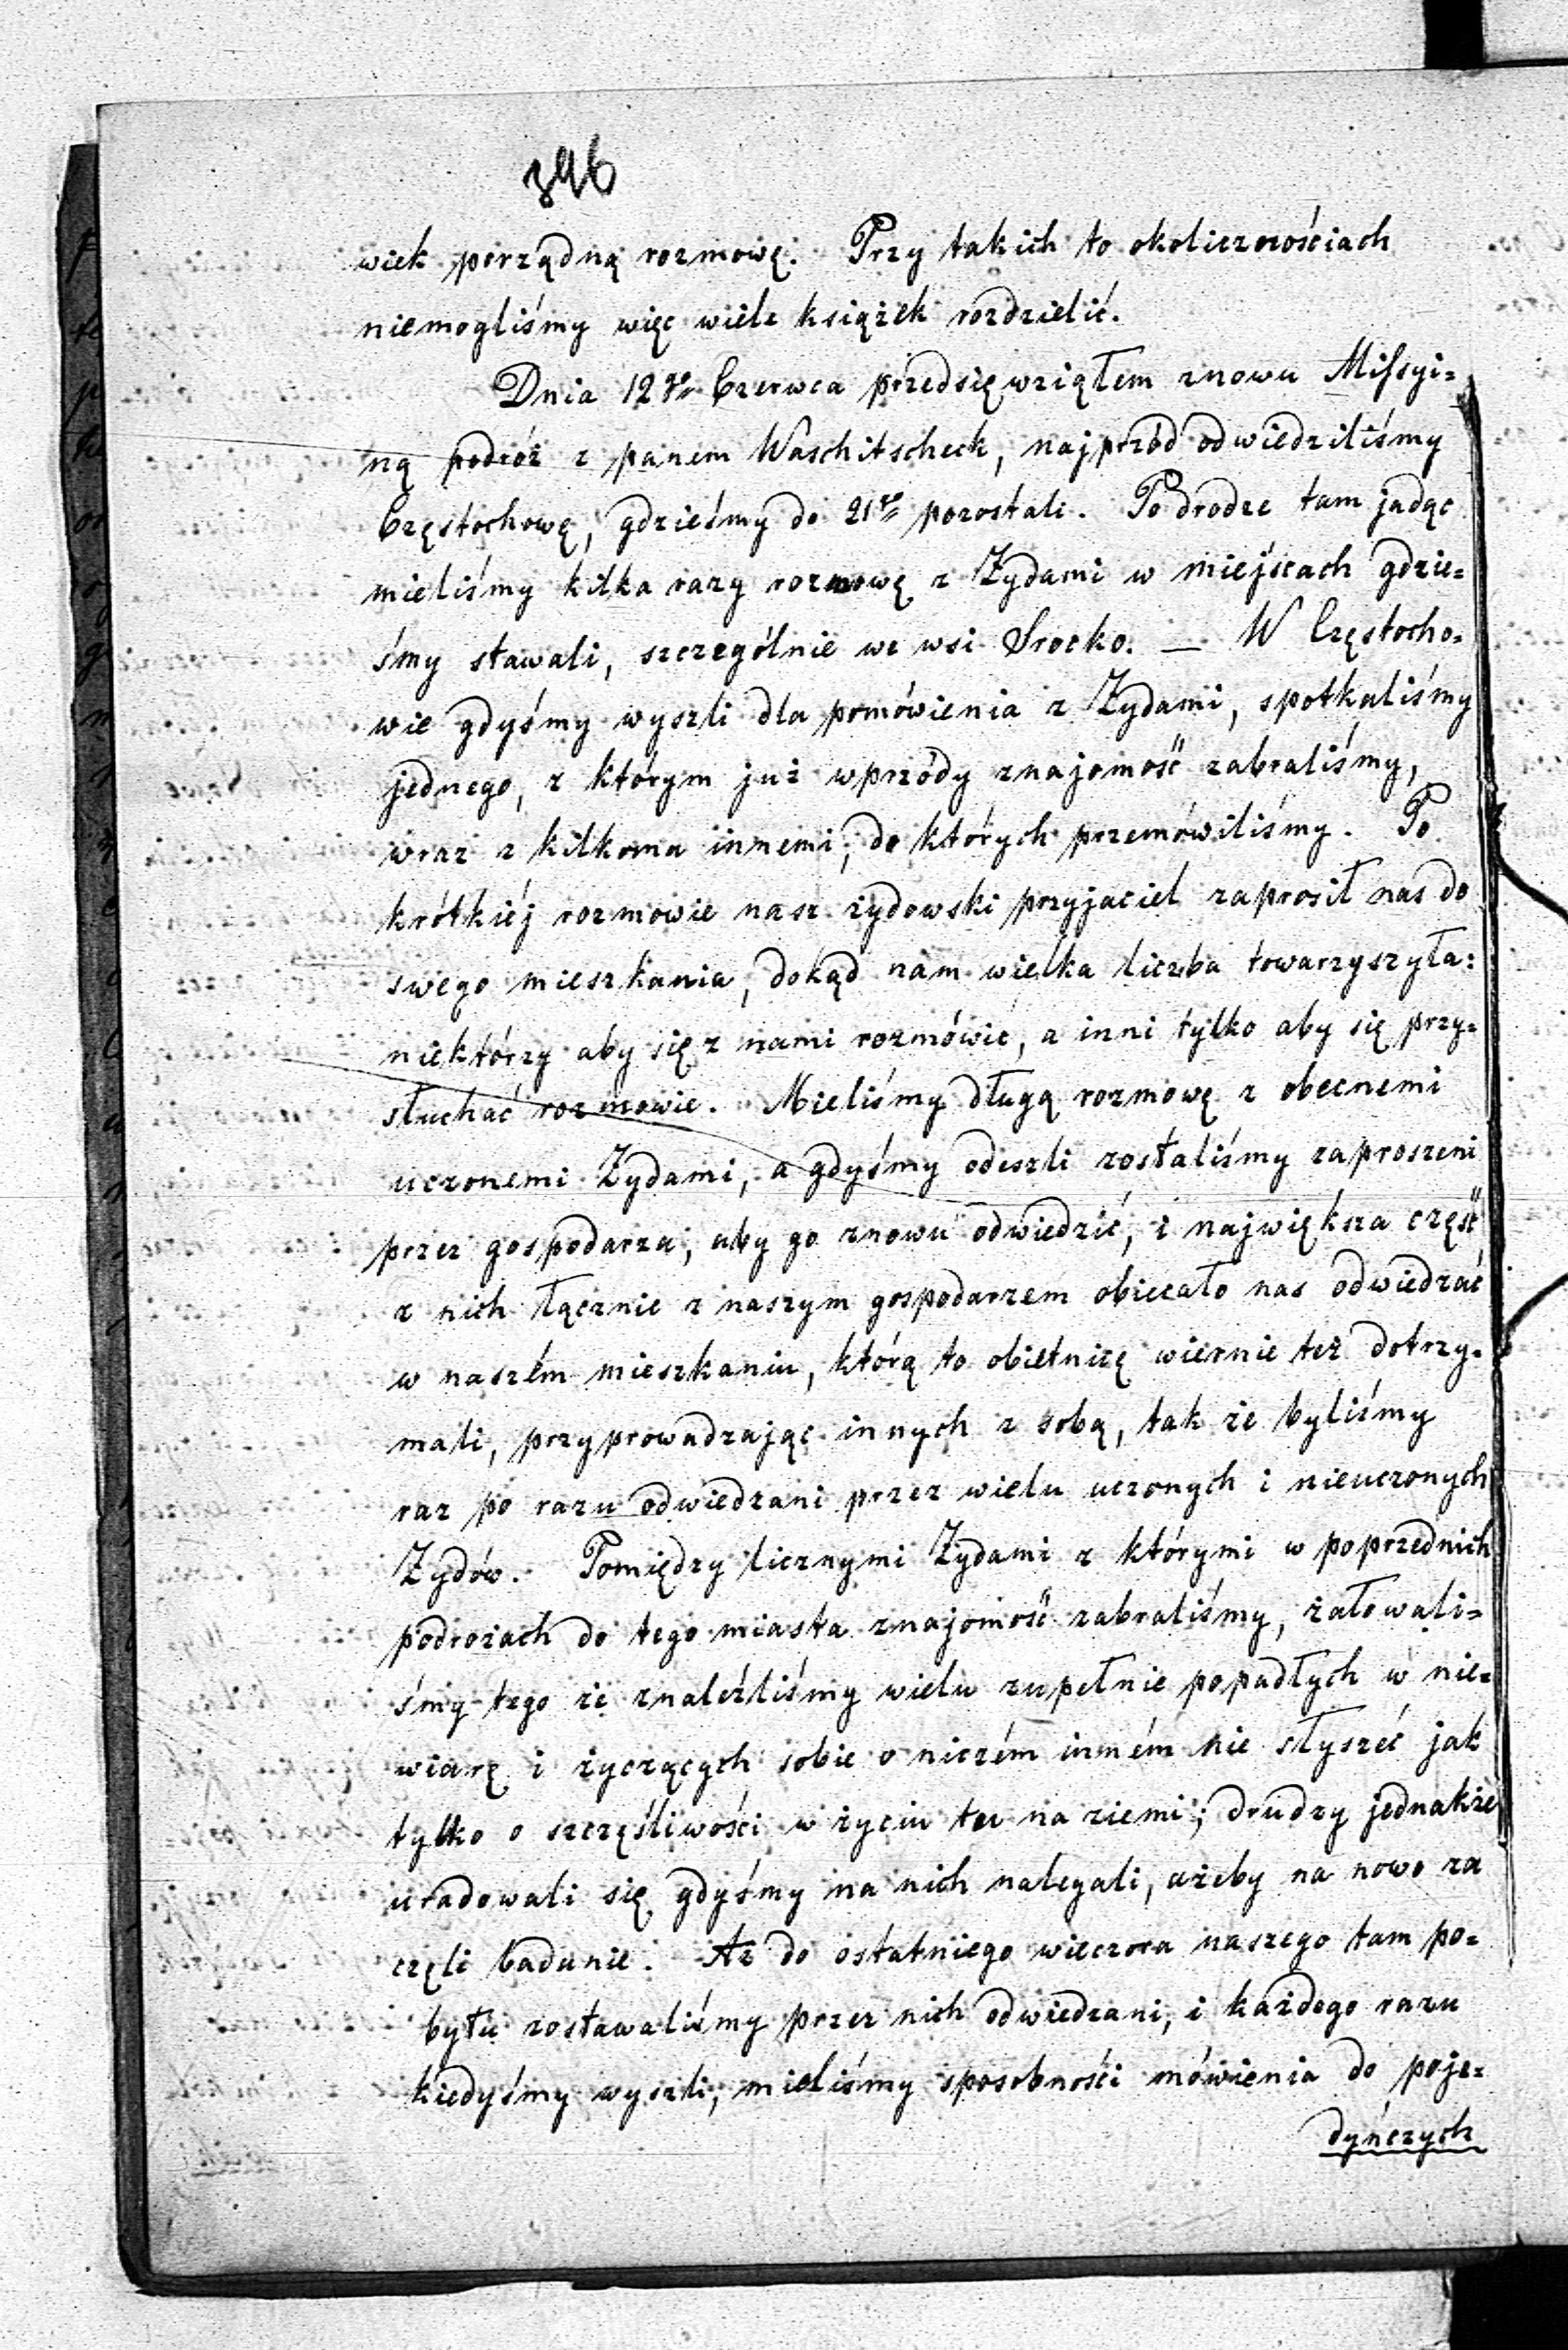 396
wiek porządną rozmowę. Przy takich to okolicznościach
niemogliśmy więc wiele książek rozdzielić.
Dnia 12go Czerwca przedsięwziąłem znowu Missyi=
ną podróż z panem Waschitscheck, najprzód odwiedziliśmy
Częstochowę, gdzieśmy do 21go pozostali. Po drodze tam jadąc
mieliśmy kilka razy rozmowę z Żydami w miejscach gdzie=
śmy stawali, szczególnie we wsi Srocko. — W Częstocho=
wie gdyśmy wyszli dla pomówienia z Żydami, spotkaliśmy
jednego, z którym już wprzódy znajomość zabraliśmy,
wraz z kilkoma innemi, do których przemówiliśmy. Po
krótkiéj rozmowie nasz żydowski przyjaciel zaprosił nas do
swego mieszkania, dokąd nam wielka liczba towarzyszyła:
niektórzy aby się z nami rozmówić, a inni tylko aby się przy=
słuchać rozmowie. Mieliśmy długą rozmowę z obecnemi
uczonemi Żydami, a gdyśmy odeszli zostaliśmy zaproszeni
przez gospodarza, aby go znowu odwiedzić, i największa część
z nich łącznie z naszym gospodarzem obiecało nas odwiedzać
w naszém mieszkaniu, którą to obietnicę wiernie też dotrzy=
mali, przyprowadzając innych z sobą, tak że byliśmy
raz po razu odwiedzani przez wielu uczonych i nieuczonych
Żydów. Pomiędzy licznymi Żydami z którymi w poprzednich
podrożach do tego miasta znajomość zabraliśmy, żałowali=
śmy tego że znaleźliśmy wielu zupełnie popadłych w nie=
wiarę i życzących sobie o niczém inném nie słyszéć jak
tylko o szczęśliwości w życiu tu na ziemi; drudzy jednakże
uradowali się gdyśmy na nich nalegali, ażeby na nowo za
częli badanie. Aż do ostatniego wieczora naszego tam po=
bytu zostawaliśmy przez nich odwiedzani, i każdego razu
kiedyśmy wyszli, mieliśmy sposobności mówienia do poje=
dyńczych